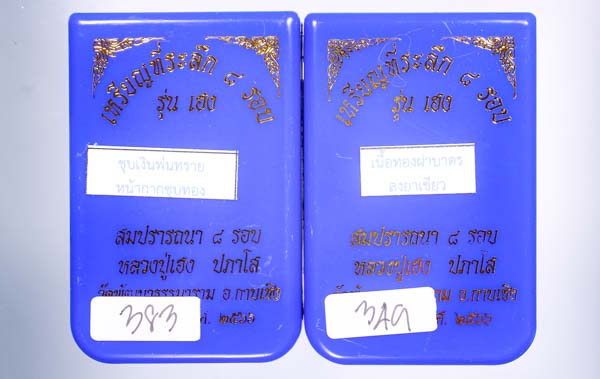 เหรียญที่ระลึก ๘ รอบ
รุ่น เฮง
ชุบเงินพ่นทราย
หน้ากากชุบทอง
สมปรารถนา ๘ รอบ
หลวงปู่เฮง ปภาโส
วัดพัฒนาธรรมาราม อ.กาบเชิง
ศ. ๒๕๖๖
383
เหรียญที่ระลึก ๘ รอบ
รุ่น เฮง
เนื้อทองฝาบาตร
ลงยาเขียว
สมปรารถนา ๘ รอบ
หลวงปู่เฮง ปภาโส
าราม อ.กาบเชิง
ศ. ๒๕๖๖
349